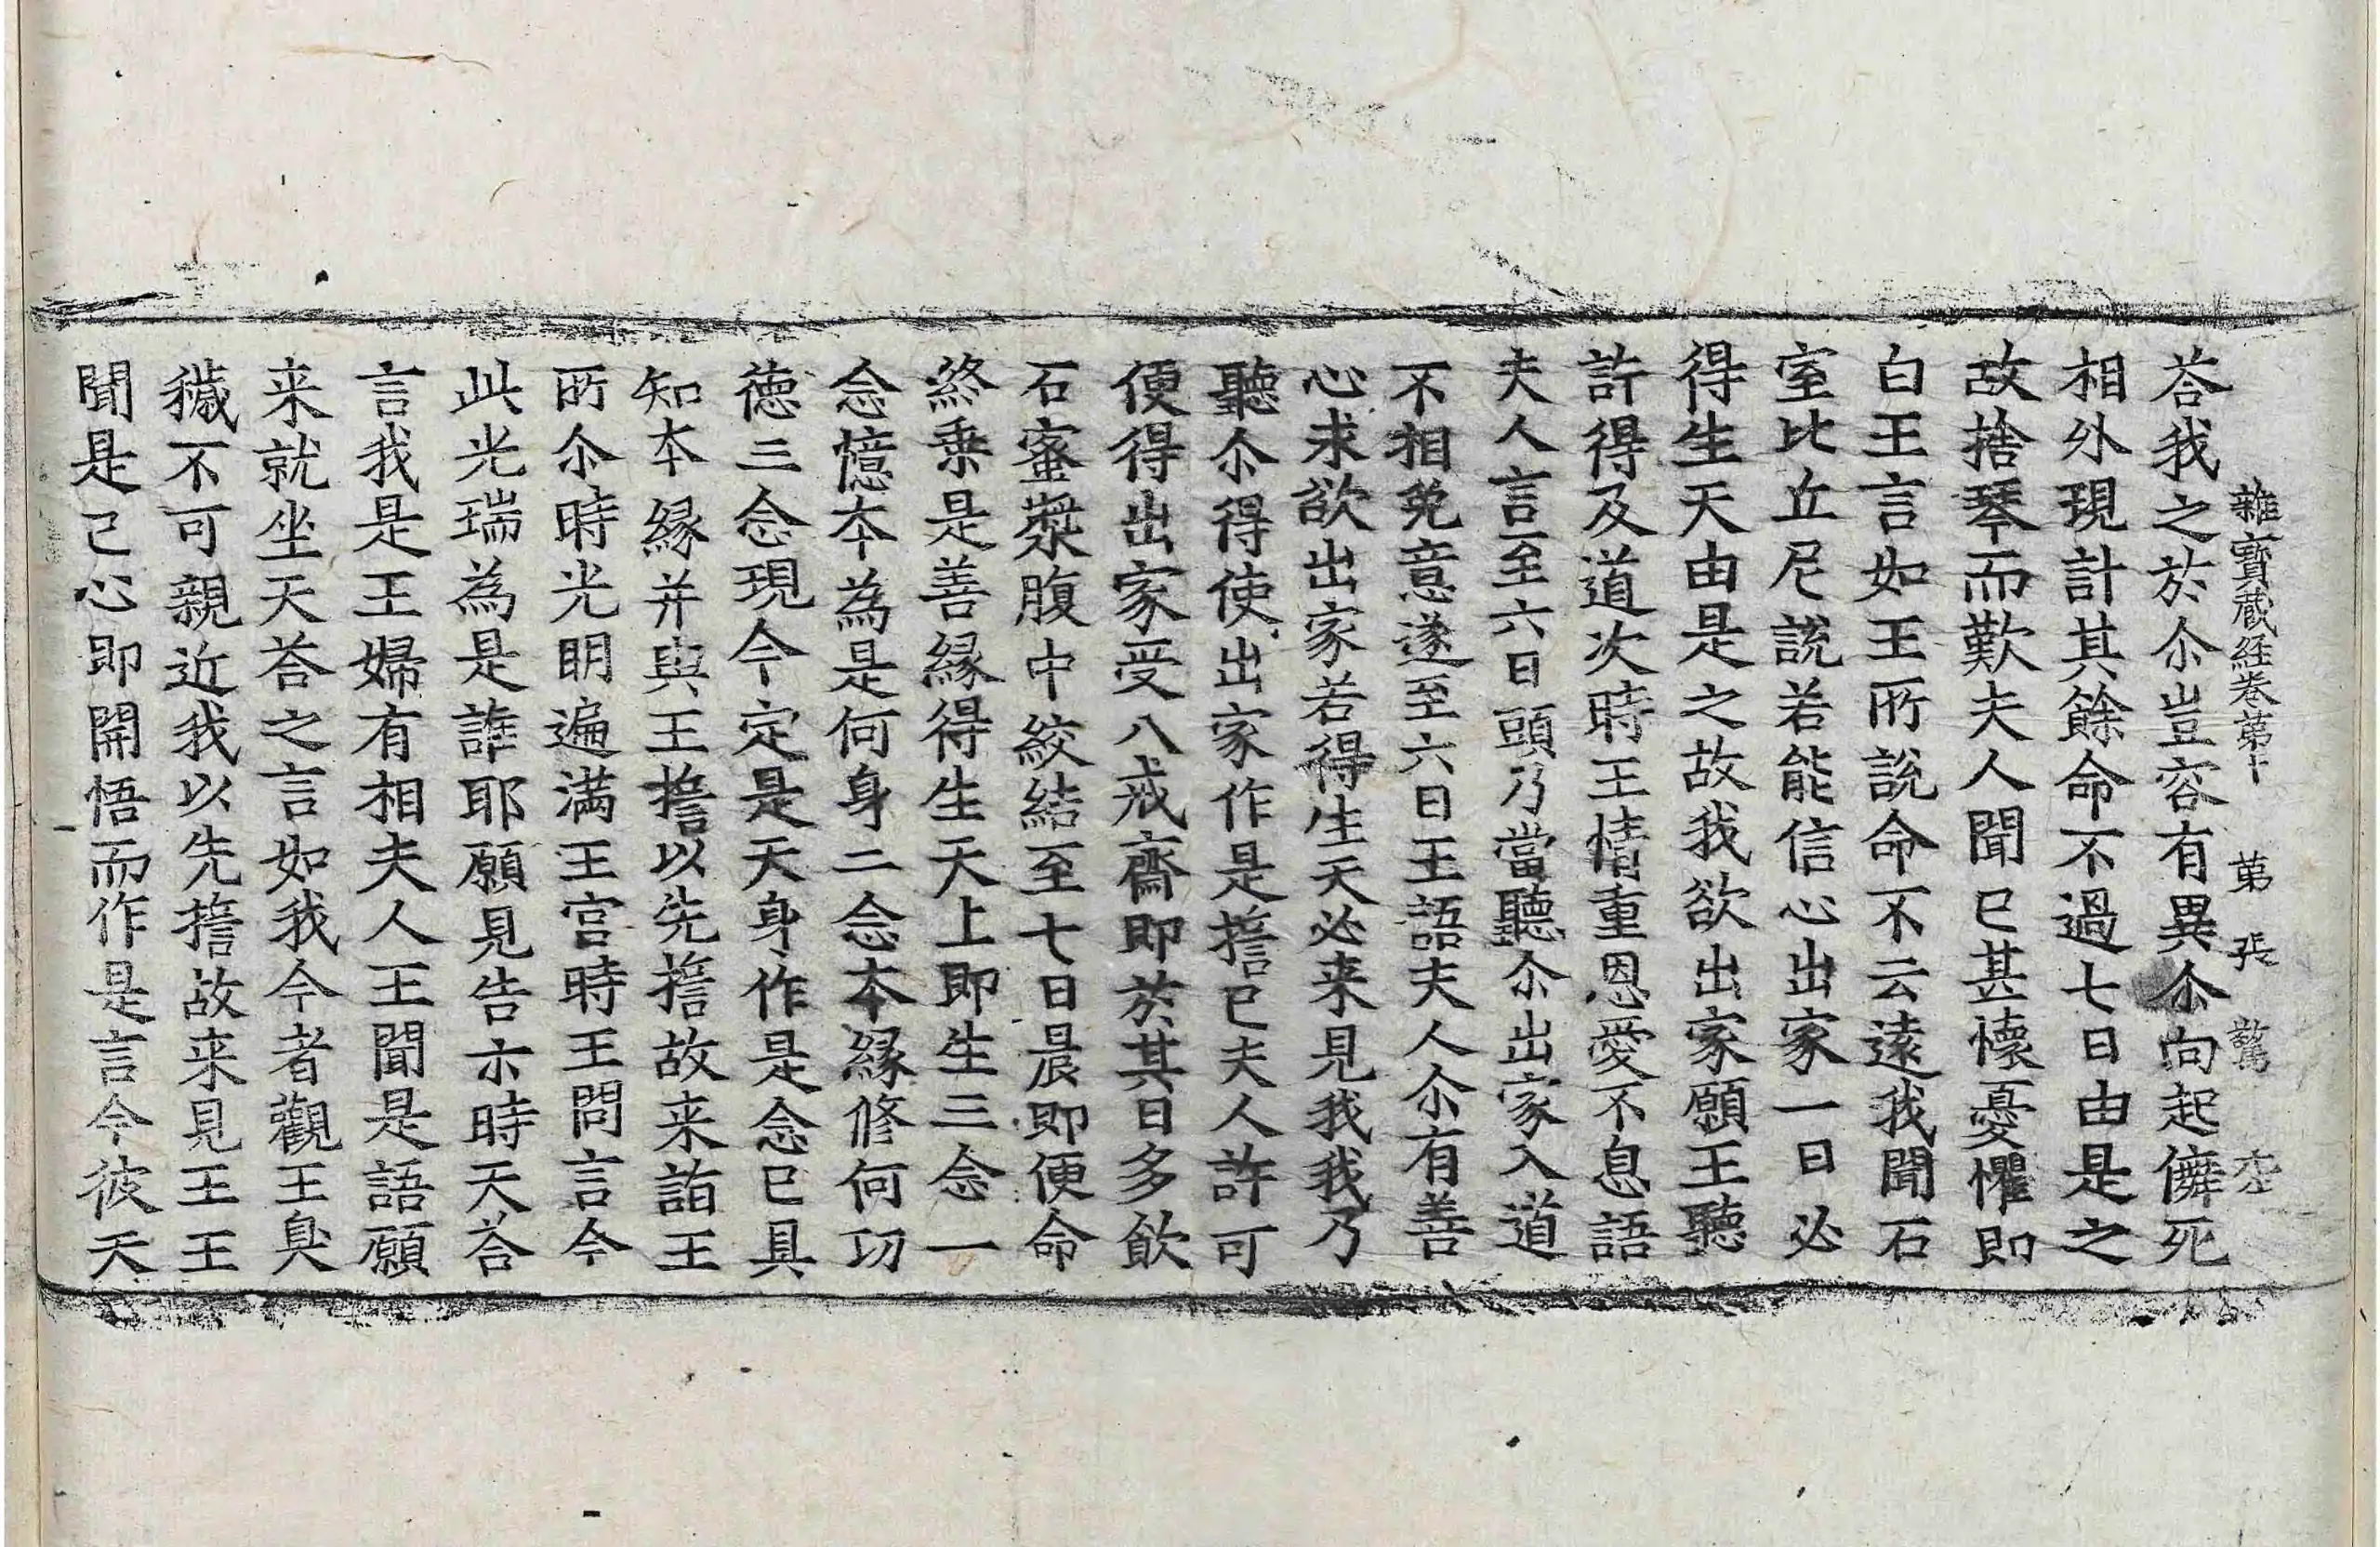 雜寶蔵経卷第十　第　張　驚
荅我之於尒豈容有異尒向起儛死
相外現計其餘命不過七日由是之
故捨琴而歎夫人聞已甚懷憂懼即
白王言如王所說命不云遠我聞石
室比丘尼說若能信心出家一日必
得生天由是之故我欲出家願王聽
許得及道次時王情重恩愛不息語
夫人言至六日頭乃當聽尒出家入道
不相免意遂至六日王語夫人尒有善
心求欲出家若得生天必来見我我乃
聽尒得使出家作是擔已夫人許可
便得出家受八戒齋即於其日多飲
石蜜漿腹中絞結至七日晨即便命
終乗是善縁得生天上即生三念一
念憶本為是何身二念本縁修何功
徳三念現今定是天身作是念已具
知本縁并與王擔以先擔故来詣王
所尒時光明遍滿王宫時王問言今
此光瑞為是誰耶願見告示時天荅
言我是王婦有相夫人王聞是語願
来就坐天荅之言如我今者觀王臭
穢不可親近我以先擔故来見王王
聞是已心即開悟而作是言今彼天